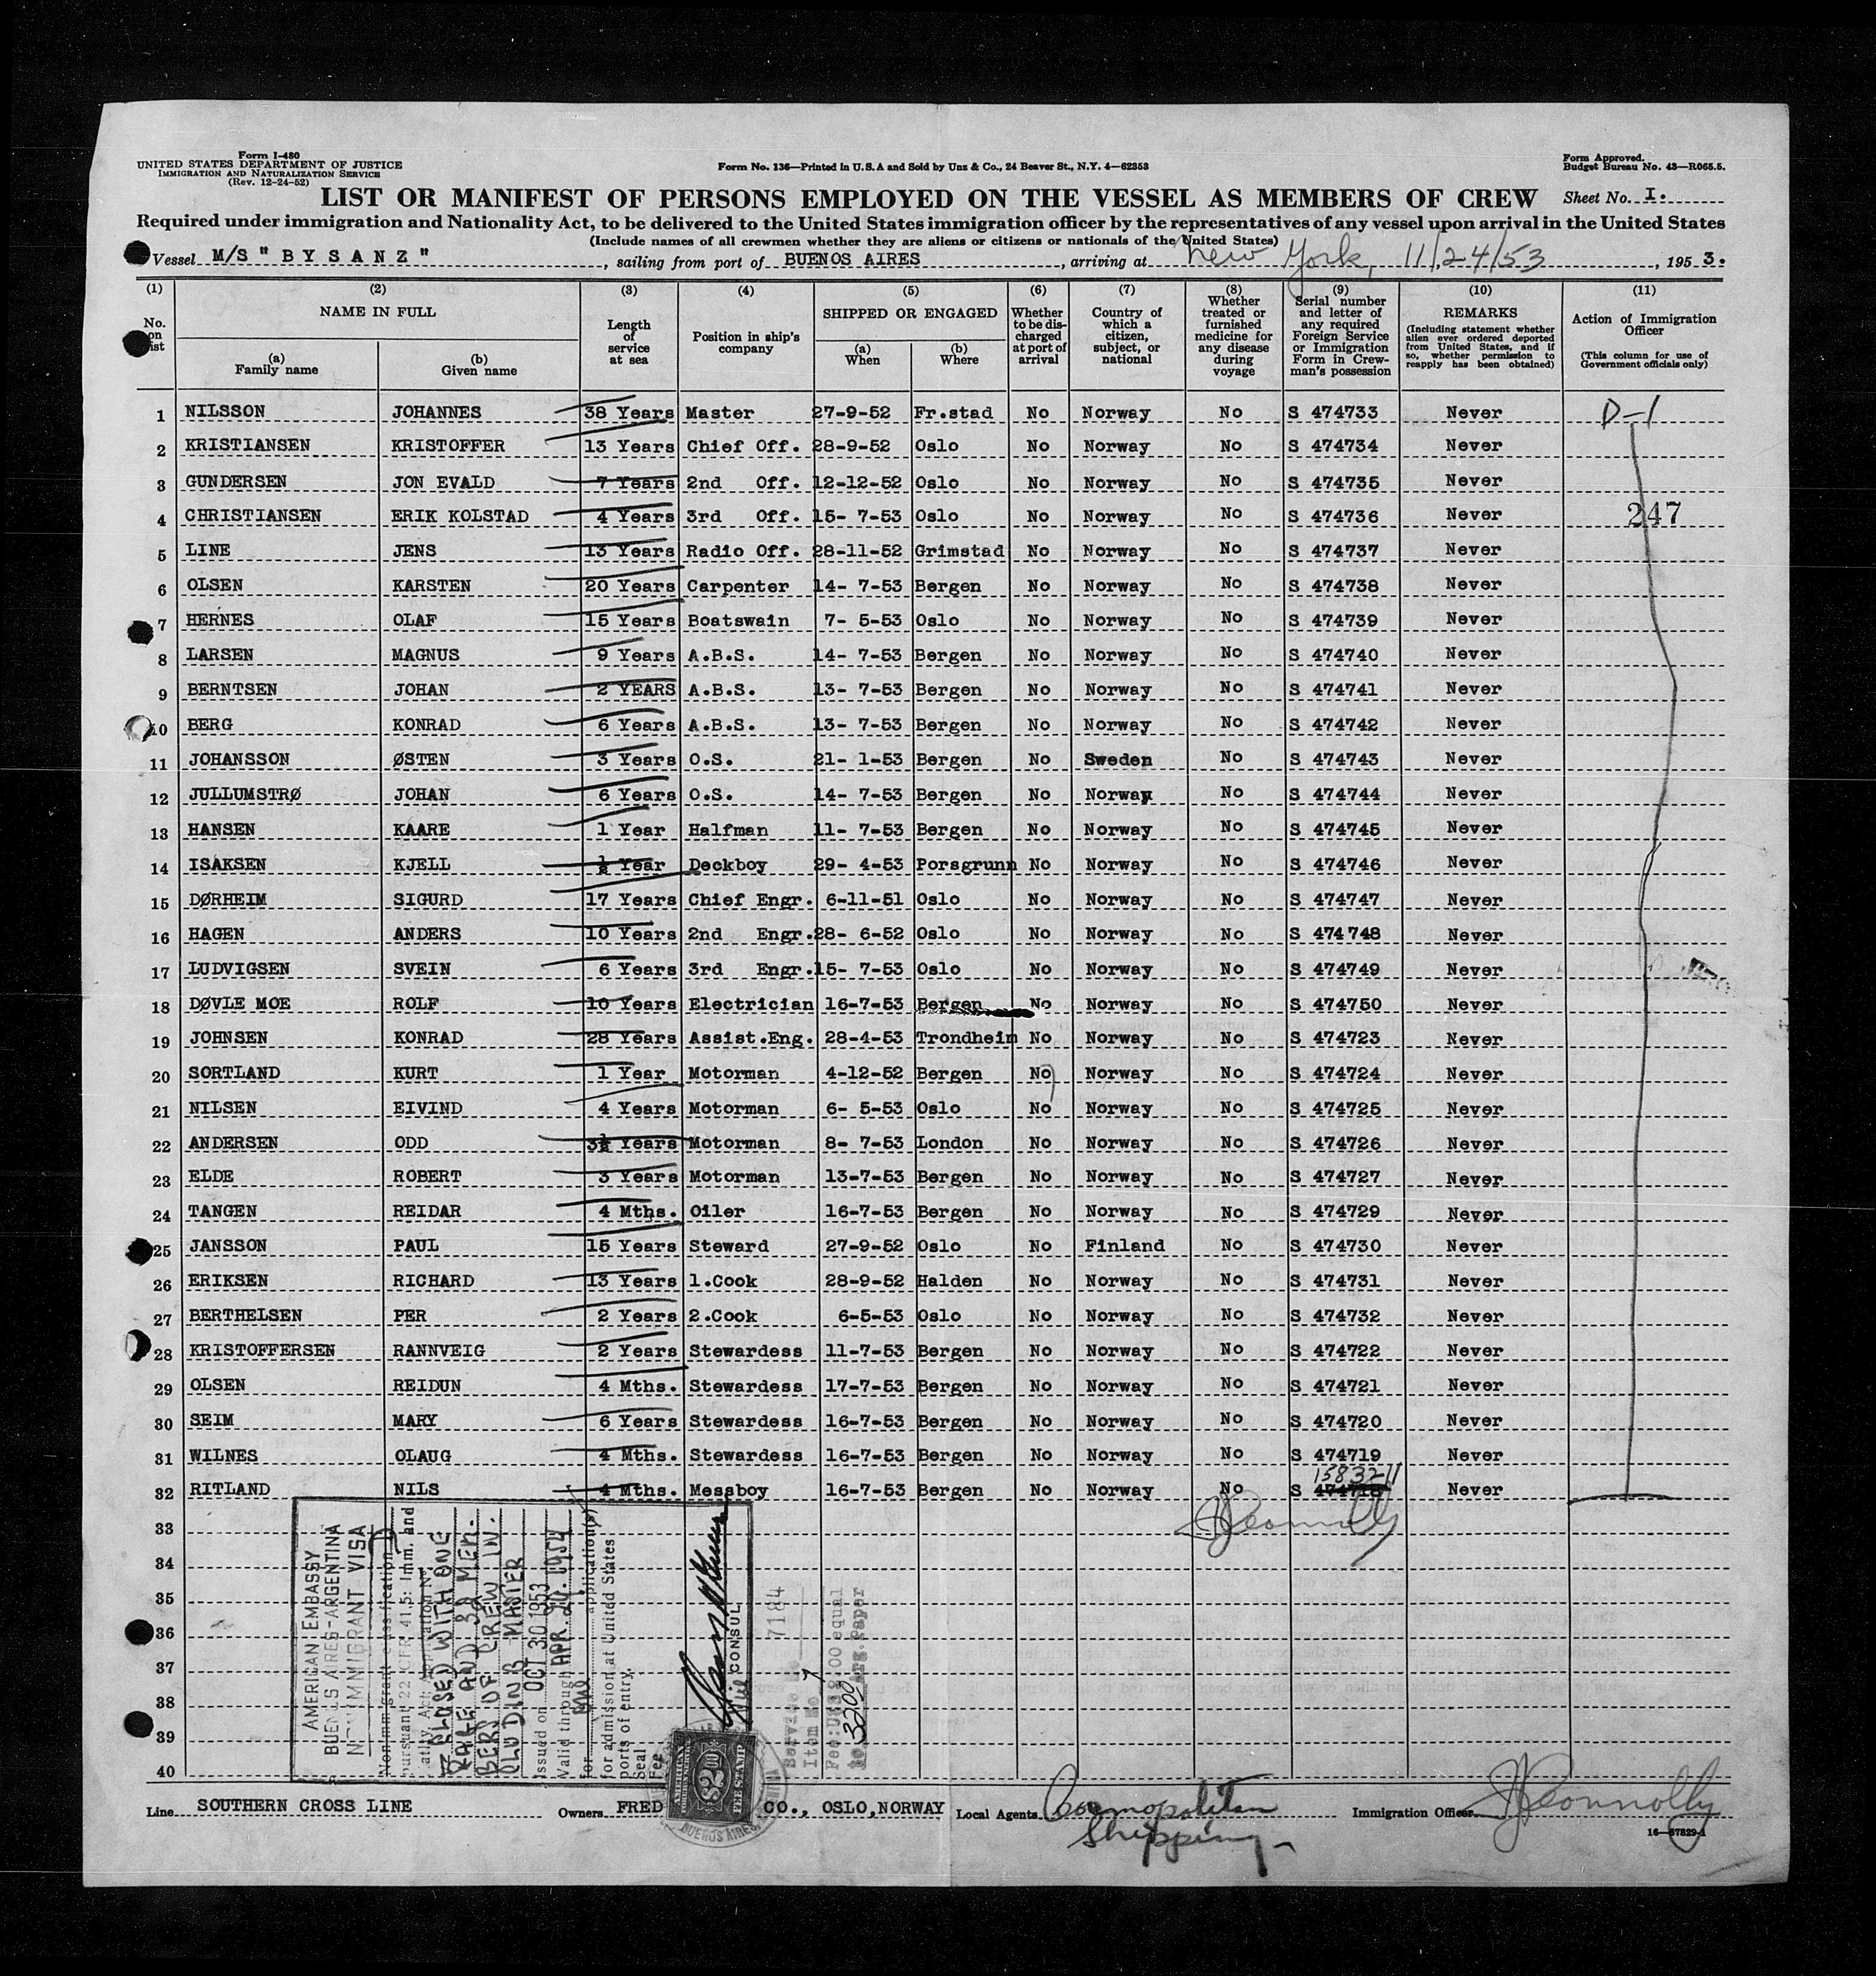 Form I-480
UNITED STATES DEPARTMENT OF JUSTICE
IMMIGRATION AND NATURALIZATION SERVICE
(Rev. 12-24-52)
Form No. 136—Printed in U.S.A and Sold by Unz & Co., 24 Beaver St., N.Y. 4—62353
Form Approved.
Budget Bureau No. 43—R065.5.
LIST OR MANIFEST OF PERSONS EMPLOYED ON THE VESSEL AS MEMBERS OF CREW Sheet No. I.
Required under immigration and Nationality Act, to be delivered to the United States immigration officer by the representatives of any vessel upon arrival in the United States
(Include names of all crewmen whether they are aliens or citizens or nationals of the United States)
Vessel M/S "BYSANZ", sailing from port of BUENOS AIRES, arriving at New York, 11/24/53, 1953.
(1) (2) (3) (4) (5) (6) (7) (8) (9) (10) (11)
No. on list
NAME IN FULL
(a) Family name
(b) Given name
Length of service at sea
Position in ship's company
SHIPPED OR ENGAGED
(a) When
(b) Where
Whether to be discharged at port of arrival
Country of which a citizen, subject, or national
Whether treated or furnished medicine for any disease during voyage
Serial number and letter of any required Foreign Service or Immigration Form in Crewman's possession
REMARKS
(Including statement whether alien ever ordered deported from United States, and if so, whether permission to reapply has been obtained)
Action of Immigration Officer
(This column for use of Government officials only)
1 NILSSON JOHANNES 38 Years Master 27-9-52 Fr.stad No Norway No S 474733 Never D-1
2 KRISTIANSEN KRISTOFFER 13 Years Chief Off. 28-9-52 Oslo No Norway No S 474734 Never
3 GUNDERSEN JON EVALD 7 Years 2nd Off. 12-12-52 Oslo No Norway No S 474735 Never
4 CHRISTIANSEN ERIK KOLSTAD 4 Years 3rd Off. 15- 7-53 Oslo No Norway No S 474736 Never 247
5 LINE JENS 13 Years Radio Off. 28-11-52 Grimstad No Norway No S 474737 Never
6 OLSEN KARSTEN 20 Years Carpenter 14- 7-53 Bergen No Norway No S 474738 Never
7 HERNES OLAF 15 Years Boatswain 7- 5-53 Oslo No Norway No S 474739 Never
8 LARSEN MAGNUS 9 Years A.B.S. 14- 7-53 Bergen No Norway No S 474740 Never
9 BERNTSEN JOHAN 2 YEARS A.B.S. 13- 7-53 Bergen No Norway No S 474741 Never
10 BERG KONRAD 6 Years A.B.S. 13- 7-53 Bergen No Norway No S 474742 Never
11 JOHANSSON ØSTEN 3 Years O.S. 21- 1-53 Bergen No Sweden No S 474743 Never
12 JULLUMSTRØ JOHAN 6 Years O.S. 14- 7-53 Bergen No Norway No S 474744 Never
13 HANSEN KAARE 1 Year Halfman 11- 7-53 Bergen No Norway No S 474745 Never
14 ISAKSEN KJELL ½ Year Deckboy 29- 4-53 Porsgrunn No Norway No S 474746 Never
15 DØRHEIM SIGURD 17 Years Chief Engr. 6-11-51 Oslo No Norway No S 474747 Never
16 HAGEN ANDERS 10 Years 2nd Engr. 28- 6-52 Oslo No Norway No S 474748 Never
17 LUDVIGSEN SVEIN 6 Years 3rd Engr. 15- 7-53 Oslo No Norway No S 474749 Never
18 DØVLE MOE ROLF 10 Years Electrician 16-7-53 Bergen No Norway No S 474750 Never
19 JOHNSEN KONRAD 28 Years Assist.Eng. 28-4-53 Trondheim No Norway No S 474723 Never
20 SORTLAND KURT 1 Year Motorman 4-12-52 Bergen No Norway No S 474724 Never
21 NILSEN EIVIND 4 Years Motorman 6- 5-53 Oslo No Norway No S 474725 Never
22 ANDERSEN ODD 3½ Years Motorman 8- 7-53 London No Norway No S 474726 Never
23 ELDE ROBERT 3 Years Motorman 13-7-53 Bergen No Norway No S 474727 Never
24 TANGEN REIDAR 4 Mths. Oiler 16-7-53 Bergen No Norway No S 474729 Never
25 JANSSON PAUL 15 Years Steward 27-9-52 Oslo No Finland No S 474730 Never
26 ERIKSEN RICHARD 13 Years 1.Cook 28-9-52 Halden No Norway No S 474731 Never
27 BERTHELSEN PER 2 Years 2.Cook 6-5-53 Oslo No Norway No S 474732 Never
28 KRISTOFFERSEN RANNVEIG 2 Years Stewardess 11-7-53 Bergen No Norway No S 474722 Never
29 OLSEN REIDUN 4 Mths. Stewardess 17-7-53 Bergen No Norway No S 474721 Never
30 SEIM MARY 6 Years Stewardess 16-7-53 Bergen No Norway No S 474720 Never
31 WILNES OLAUG 4 Mths. Stewardess 16-7-53 Bergen No Norway No S 474719 Never
32 RITLAND NILS 4 Mths. Messboy 16-7-53 Bergen No Norway No S 474718 Never
33
34
35
36
37
38
39
40
AMERICAN EMBASSY
BUENOS AIRES-ARGENTINA
NONIMMIGRANT VISA
Nonimmigrant classification D
pursuant 22 CFR 41.5: Imm. and
CLOSED WITH ONE
PAGE AND 32 MEM-
BERS OF CREW IN-
CLUDING MASTER
Issued on OCT 30 1953
Valid through APR. 20. 1954
for one application(s)
for admission at United States
ports of entry.
Seal
Fee
CONSUL
Service No. 7184
Item No. 7
Fee: US$2.00 equal
to Arg. Paper
$2
FEE STAMP
BUENOS AIRES
Line SOUTHERN CROSS LINE Owners FRED CO., OSLO, NORWAY Local Agents Cosmopolitan Shipping Immigration Officer JJConnolly
16—67829-1